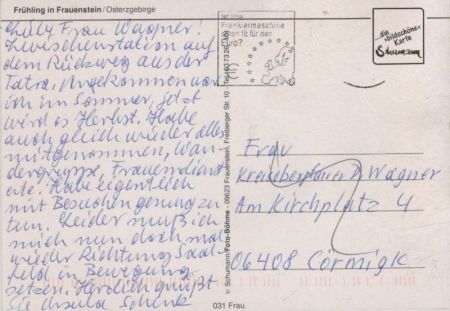 Frühling in Frauenstein / Osterzgebirge
Liebe Frau Wagner!
Zwischenstation auf
dem Rückweg aus der
Tatra. Angekommen war
ich im Sommer, jetzt
wird es Herbst. Habe
auch gleich wieder alles
mitgenommen, Wan-
dergruppe, Frauendienst
etc. Habe eigentlich
mit Besuchen genug zu
tun. Leider muß ich
mich nun doch mal
wieder Richtung Saal-
feld in Bewegung
setzen. Herzlich grüßt
Sie Ursula Schenk
© Schumann/Foto-Böhme - 09623 Frauenstein, Freiberger Str. 10 - Tel.
Ist Ihre
Frankiermaschine
schon fit für den
Euro?
die
»bildschöne«
Karte
Schumann
Frau
Kreisoberpfarrer D. Wagner
Am Kirchplatz 4
06408 Cörmigk
031 Frau.